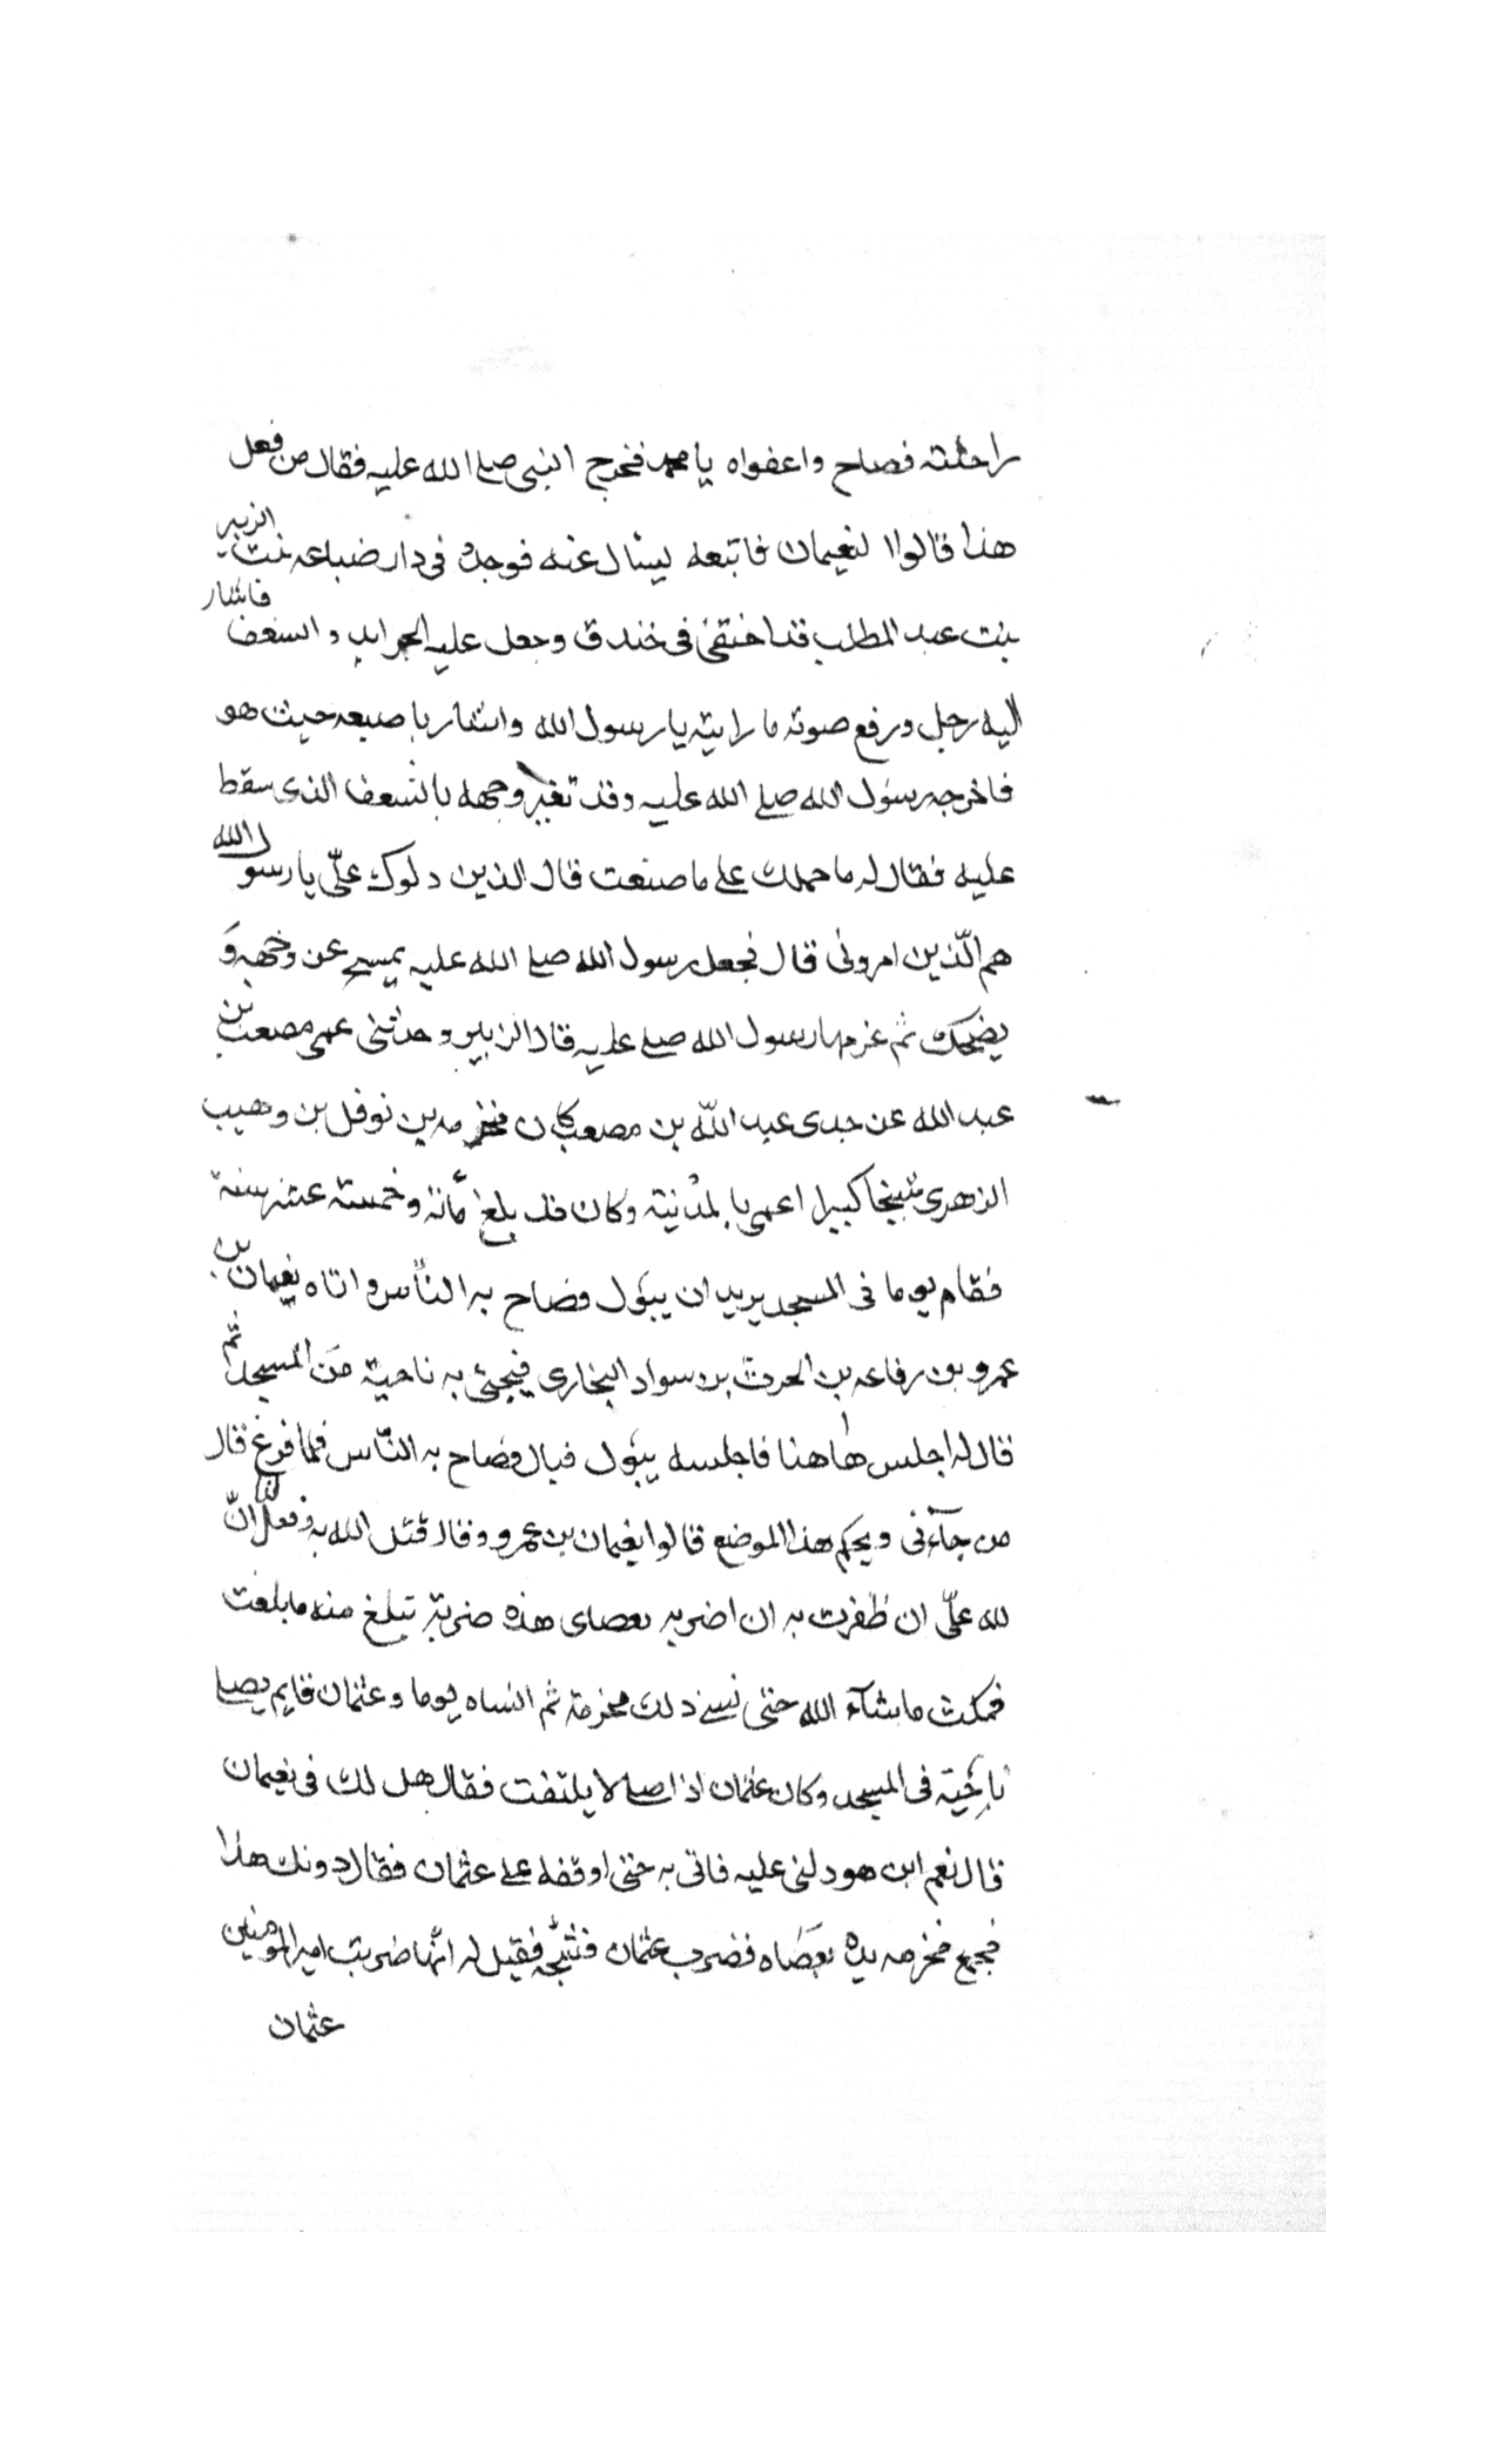 راحلته فصاح واعفواه يا محمد فخرج النبى صلى الله عليه فقال من فعل
هذا قالوا لنعيمان فاتبعه ليسأل عنه فوجده فى دار ضباعه بنت الزبير
بنت عبد المطلب قد اختفى فى خندق وجعل عليه الجرايد والسعف فاشار
اليه رجل ورفع صوته ما رايته يا رسول الله واشار باصبعه حيث هو
فاخرجه رسول الله صلى الله عليه وقد تغير وجهه بالسعف الذى سقط
عليه فقال له ما حملك على ما صنعت قال الذين دلوك علىّ يا رسول الله
هم الّذين امرونى قال فجعل رسول الله صلى الله عليه يمسح عن وجهه وَ
يضحك ثم غرمها رسول الله صلى عليه قال الزبير وحدثنى عمى مصعب بن
عبد الله عن جدى عبد اللّه بن مصعب كان مخرمه بن نوفل بن وهيب
الزهرى شيخا كبيرا اعمى بالمدينة وكان قد بلغ مأئة وخمسة عشر سنة
فقام يوما فى المسجد يريد ان يبول فصاح به النّاس واتاه نعيمان بن
عمرو بن رفاعه بن الحرث بن سواد النجارى فيجئ به ناحية من المسجد ثم
قال له اجلس هاهنا فاجلسه يبول فبال وصاح به النّاس فلما فرغ قال
من جآءنى ويحكم هذا الموضع قالوا نعيمان بن عمرو وقال قتل الله به وفعل اما انّ
لله علىّ ان ظفرت به ان اضربه بعصاى هذه ضربة تبلغ منه ما بلغت
فمكث ما شآء الله حتى نسى ذلك مخرمة ثم اتساه يوما وعثمان قايم يصلى
ناحية فى المسجد وكان عثمان اذا صلى لا يلتفت فقال هل لك فى نعيمان
قال نعم اين هو دلنى عليه فاتى به حتى اوقفه على عثمان فقال دونك هذا
فجمع مخرمه يده بعصاه فضرب عثمان فشجّه فقيل له انّما ضربت امير المومنين
عثمان